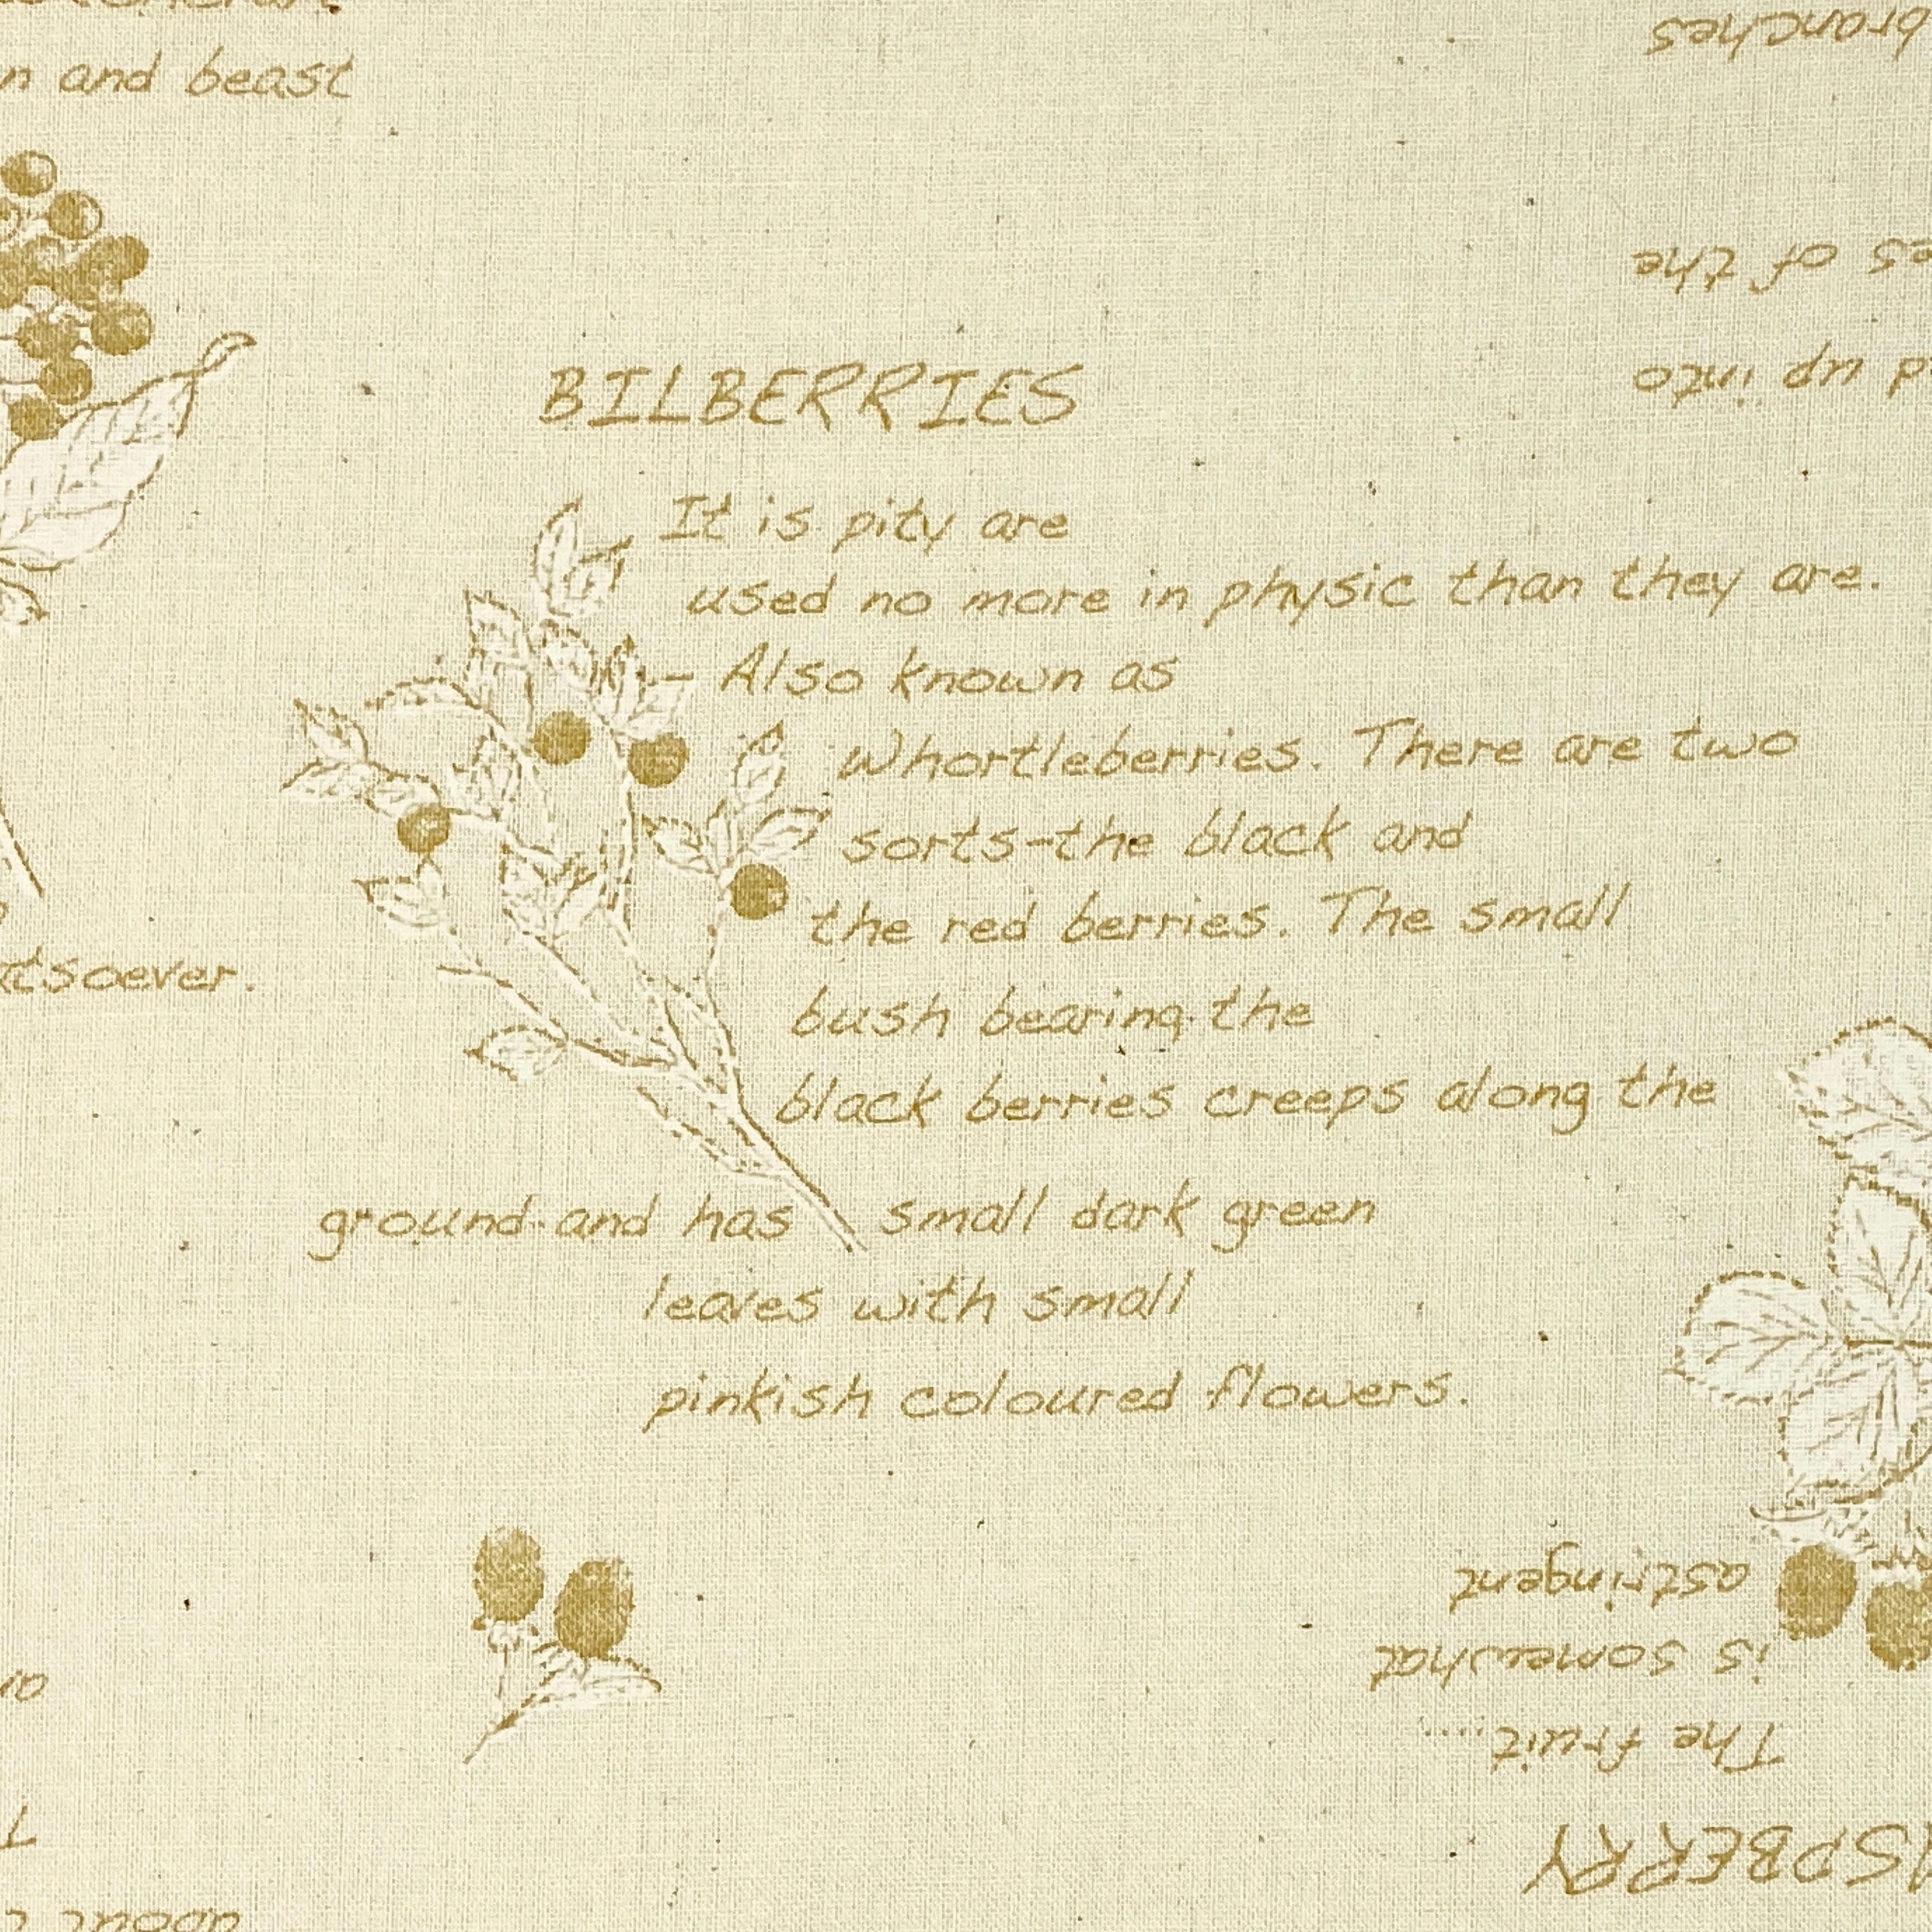 and beast
branches
of the
up into
BILBERRIES
It is pity are
used no more in physic than they are.
- Also known as
Whortleberries. There are two
sorts-the black and
the red berries. The small
bush bearing the
black berries creeps along the
ground and has small dark green
leaves with small
pinkish coloured flowers.
The fruit.....
is somewhat
astringent
about